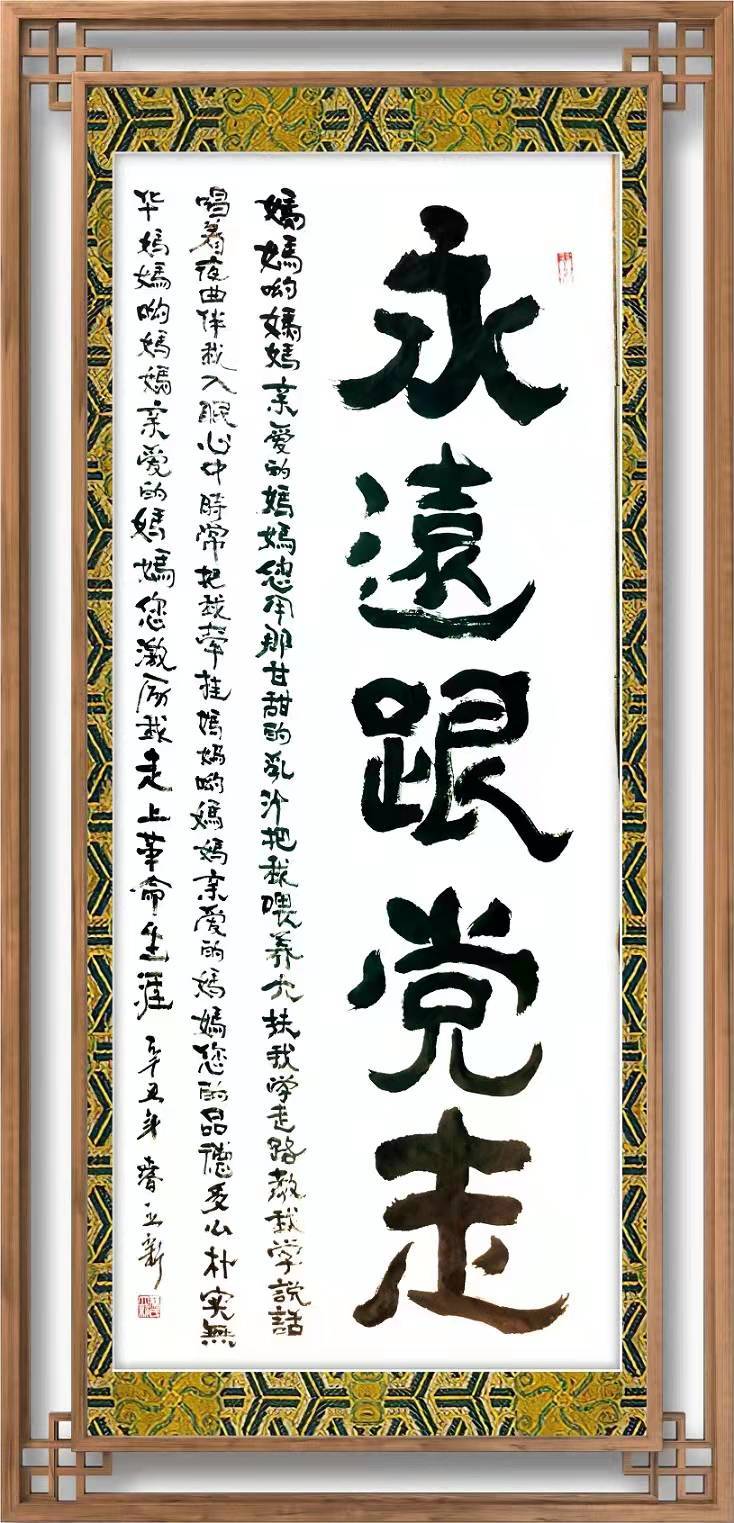 永遠跟党走
媽媽哟媽媽亲爱的媽媽您用那甘甜的乳汁把我喂养大扶我学走路教我学説話
唱着夜曲伴我入眠心中時常把我牵挂媽媽哟媽媽亲爱的媽媽您的品德多么朴实無
华媽媽哟媽媽亲爱的媽媽您激励我走上革命生涯 辛丑年春 正新